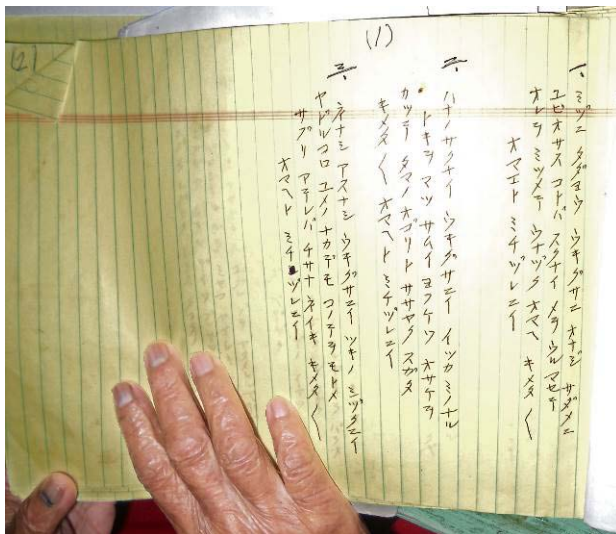 (1)
一、ミヅニ タダヨウ ウキグサニ オナジ サダメニ
ユビオサス コトバ スクナイ メヲ ウルマセテ
オレヲ ミツメテ ウナヅク オマヘ キメタ〱
オマエト ミチヅレニイ
二、ハナノサカナイ ウキグサニイ イツカ ミノナル
トキヲ マツ サムイ ヨフケワ オサケヲ
カッテ タマノ オゴリト ササヤク スガタ
キメタ〱 オマヘト ミチヅレニイ
三、ネナシ アスナシ ウキグサニイ ツキノ
ヤドルコロ ユメノ ナカデモ コノテヲ モトメ
サグリ アテレバ チサナ ネイキ キメタ〱
オマヘト ミチヅレニイ
(2)